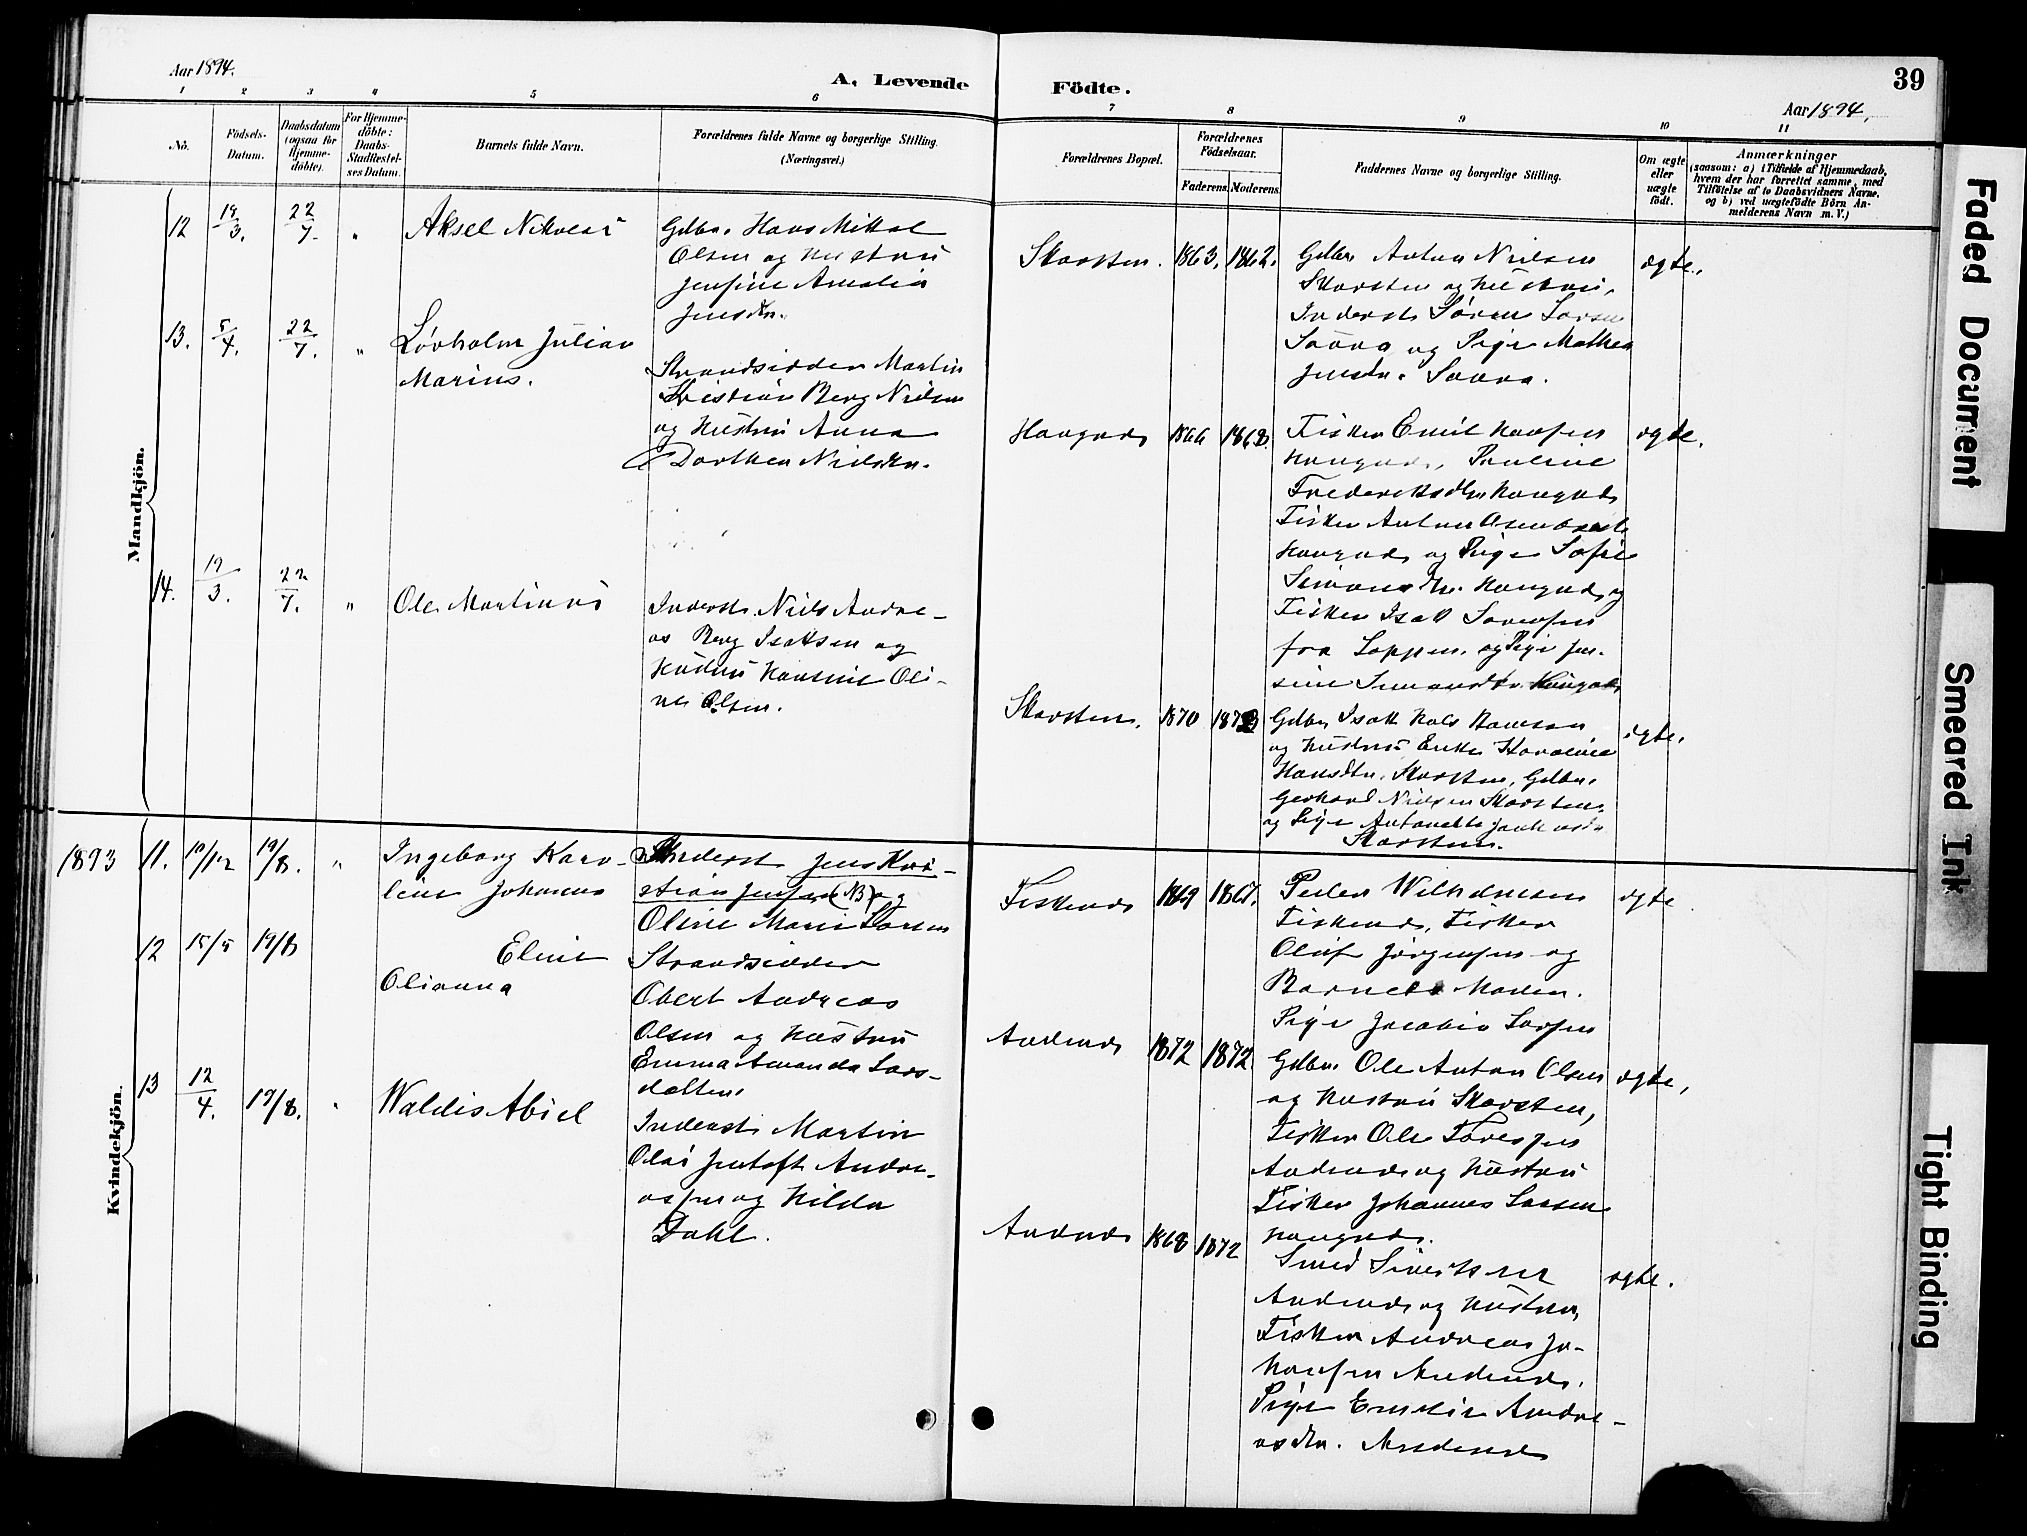 Aar 1894.
A. Levende
Födte.
39
Aar 1894.
1 2 3 4 5 6 7 8 9 10 11
No.
Födsels-
Datum.
Daabsdatum
(ogsaa for
Hjemme-
döbte).
For Hjemme-
döbte:
Daabs-
Stadfestel-
ses Datum.
Barnets fulde Navn.
Forældrenes fulde Navne og borgerlige Stilling.
(Næringsvei.)
Forældrenes Bopæl.
Forældrenes
Födselsaar.
Faderens. Moderens.
Faddernes Navne og borgerlige Stilling.
Om ægte
eller
uægte
født.
Anmærkninger
(saasom: a) i Tilfælde af Hjemmedaab,
hvem der har forrettet samme, med
Tilföielse af to Daabsvidners Navne.
og b) ved uægtefödte Börn An-
melderens Navn m. V.)
Mandkjön.
12 19/3. 22/7. "
Aksel Nikolai
Gdbr. Hans Mikal
Olsen og Hustru
Jensine Amalia
Jensdtr.
Skarsten. 1863. 1862.
Gdbr. Anton Nielsen
Skarsten og Hustru,
Inderst Søren Larsen
Saava og Pige Mathea
Jensdtr. Saava.
ægte.
13. 5/4. 22/7. "
Løvholm Julian
Marius.
Strandsidder Martin
Kristian Berg Nielsen
og Hustru Anna
Dorthea Nielsdtr.
Haugnes 1866 1868.
Fisker Emil Hansen
Haugnes, Pauline
Frederiksdtr Haugnes
Fisker Anton
Haugnes og Pige Sofie
Simonsdtr. Haugnes og
Fisker Isak Sørensen
fra Loppen. og Pige Jen-
sine Simonsdtr. Haugnes
ægte.
14. 19/3. 22/7. "
Ole Martinus
Inderst Niels Andre-
as Berg Isaksen og
Hustru Hansine Oli-
ne Olsen.
Skarsten. 1870 1873
Gdbr. Isak Hals Hansen
og Hustru Erika Karoline
Hansdtr. Skarsten, Gdbr.
Gerhard Nielsen Skarsten.
og Pige Antonette
Skarsten.
ægte.
Kvindekjön.
1893 11. 10/12 19/8. "
Ingeborg Karo-
line Johanna
Inderst Jens Kri-
stian Jensen (NB) og
Oline Marie Larsen
Fiskenes 1869 1867.
Peder Wilhelmsen
Fiskenes, Fisker
Oluf Jørgensen og
Barnets Moder.
Pige Jacobie Larsen
ægte
12 15/5 19/8
Eline
Olianna
Strandsidder
Obert Andreas
Olsen og Hustru
Emma Amanda Lars-
datter
Andenes 1872 1872.
Gdbr. Ole Anton Olsen
og Hustru Skarsten,
Fisker Ole Toresen
Andenes og Hustru
Fisker Johannes Larsen
Haugnes.
ægte,
13 12/4. 19/8. "
Waldis Abiel
Inderst Martin
Olai Jentoft Andre-
assen og Hilda
Dahl.
Andenes 1868 1872
Smed Sivertsen
Andenes og Hustru,
Fisker Andreas Jo-
hansen Andenes.
Pige Emilie Andre-
asdtr. Andenes
ægte.
Faded Document
Smeared Ink
Tight Binding